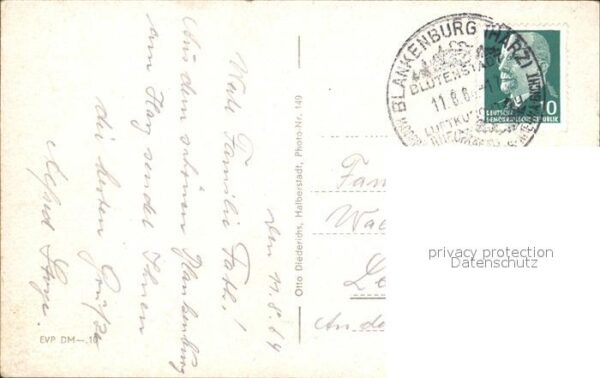 den 11.8.64
Werte Familie
Aus dem schönen Blankenburg
am Harz sendet Ihnen
die besten Grüße
Alfred
EVP DM —,10
Otto Diederichs, Halberstadt, Photo-Nr. 149
BLANKENBURG (HARZ)
BLÜTENSTADT
LUFTKURORT
10
DEUTSCHE
DEMOKRATISCHE REPUBLIK
Fam
Wa
An de
privacy protection
Datenschutz